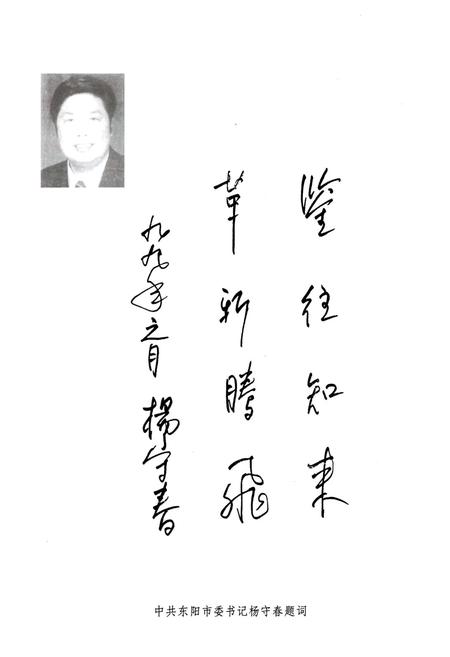 鉴往知来
革新腾飞
九九年元月 楊守春
中共东阳市委书记杨守春题词